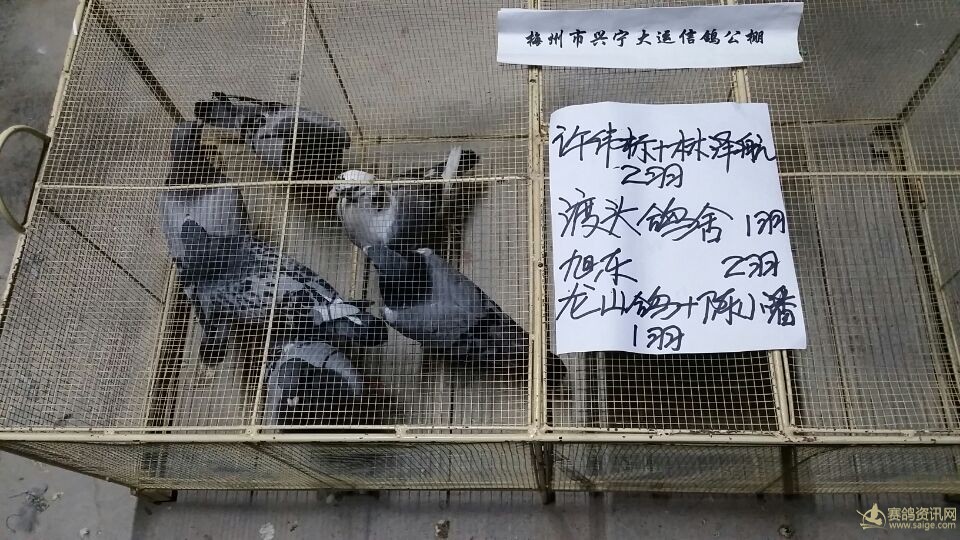 梅州市兴宁大运信鸽公棚
许伟标+林泽航
2羽
渡头鸽舍 1羽
旭东 2羽
龙山鸽+陈小潘
1羽
赛鸽资讯网
www.saige.com